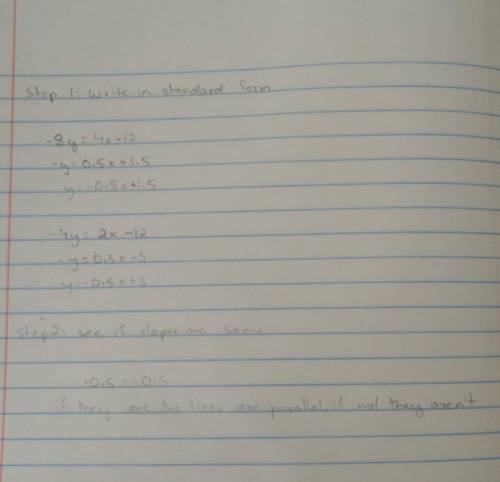 Step 1: Write in standard form
-8y = 4x - 12
-y = 0.5x + 1.5
y = -0.5x + 1.5
-4y = 2x - 12
-y = 0.5x - 3
y = -0.5x + 3
Step 2: see if slopes are same
-0.5 = -0.5
if they are the lines are parallel, if not they aren't